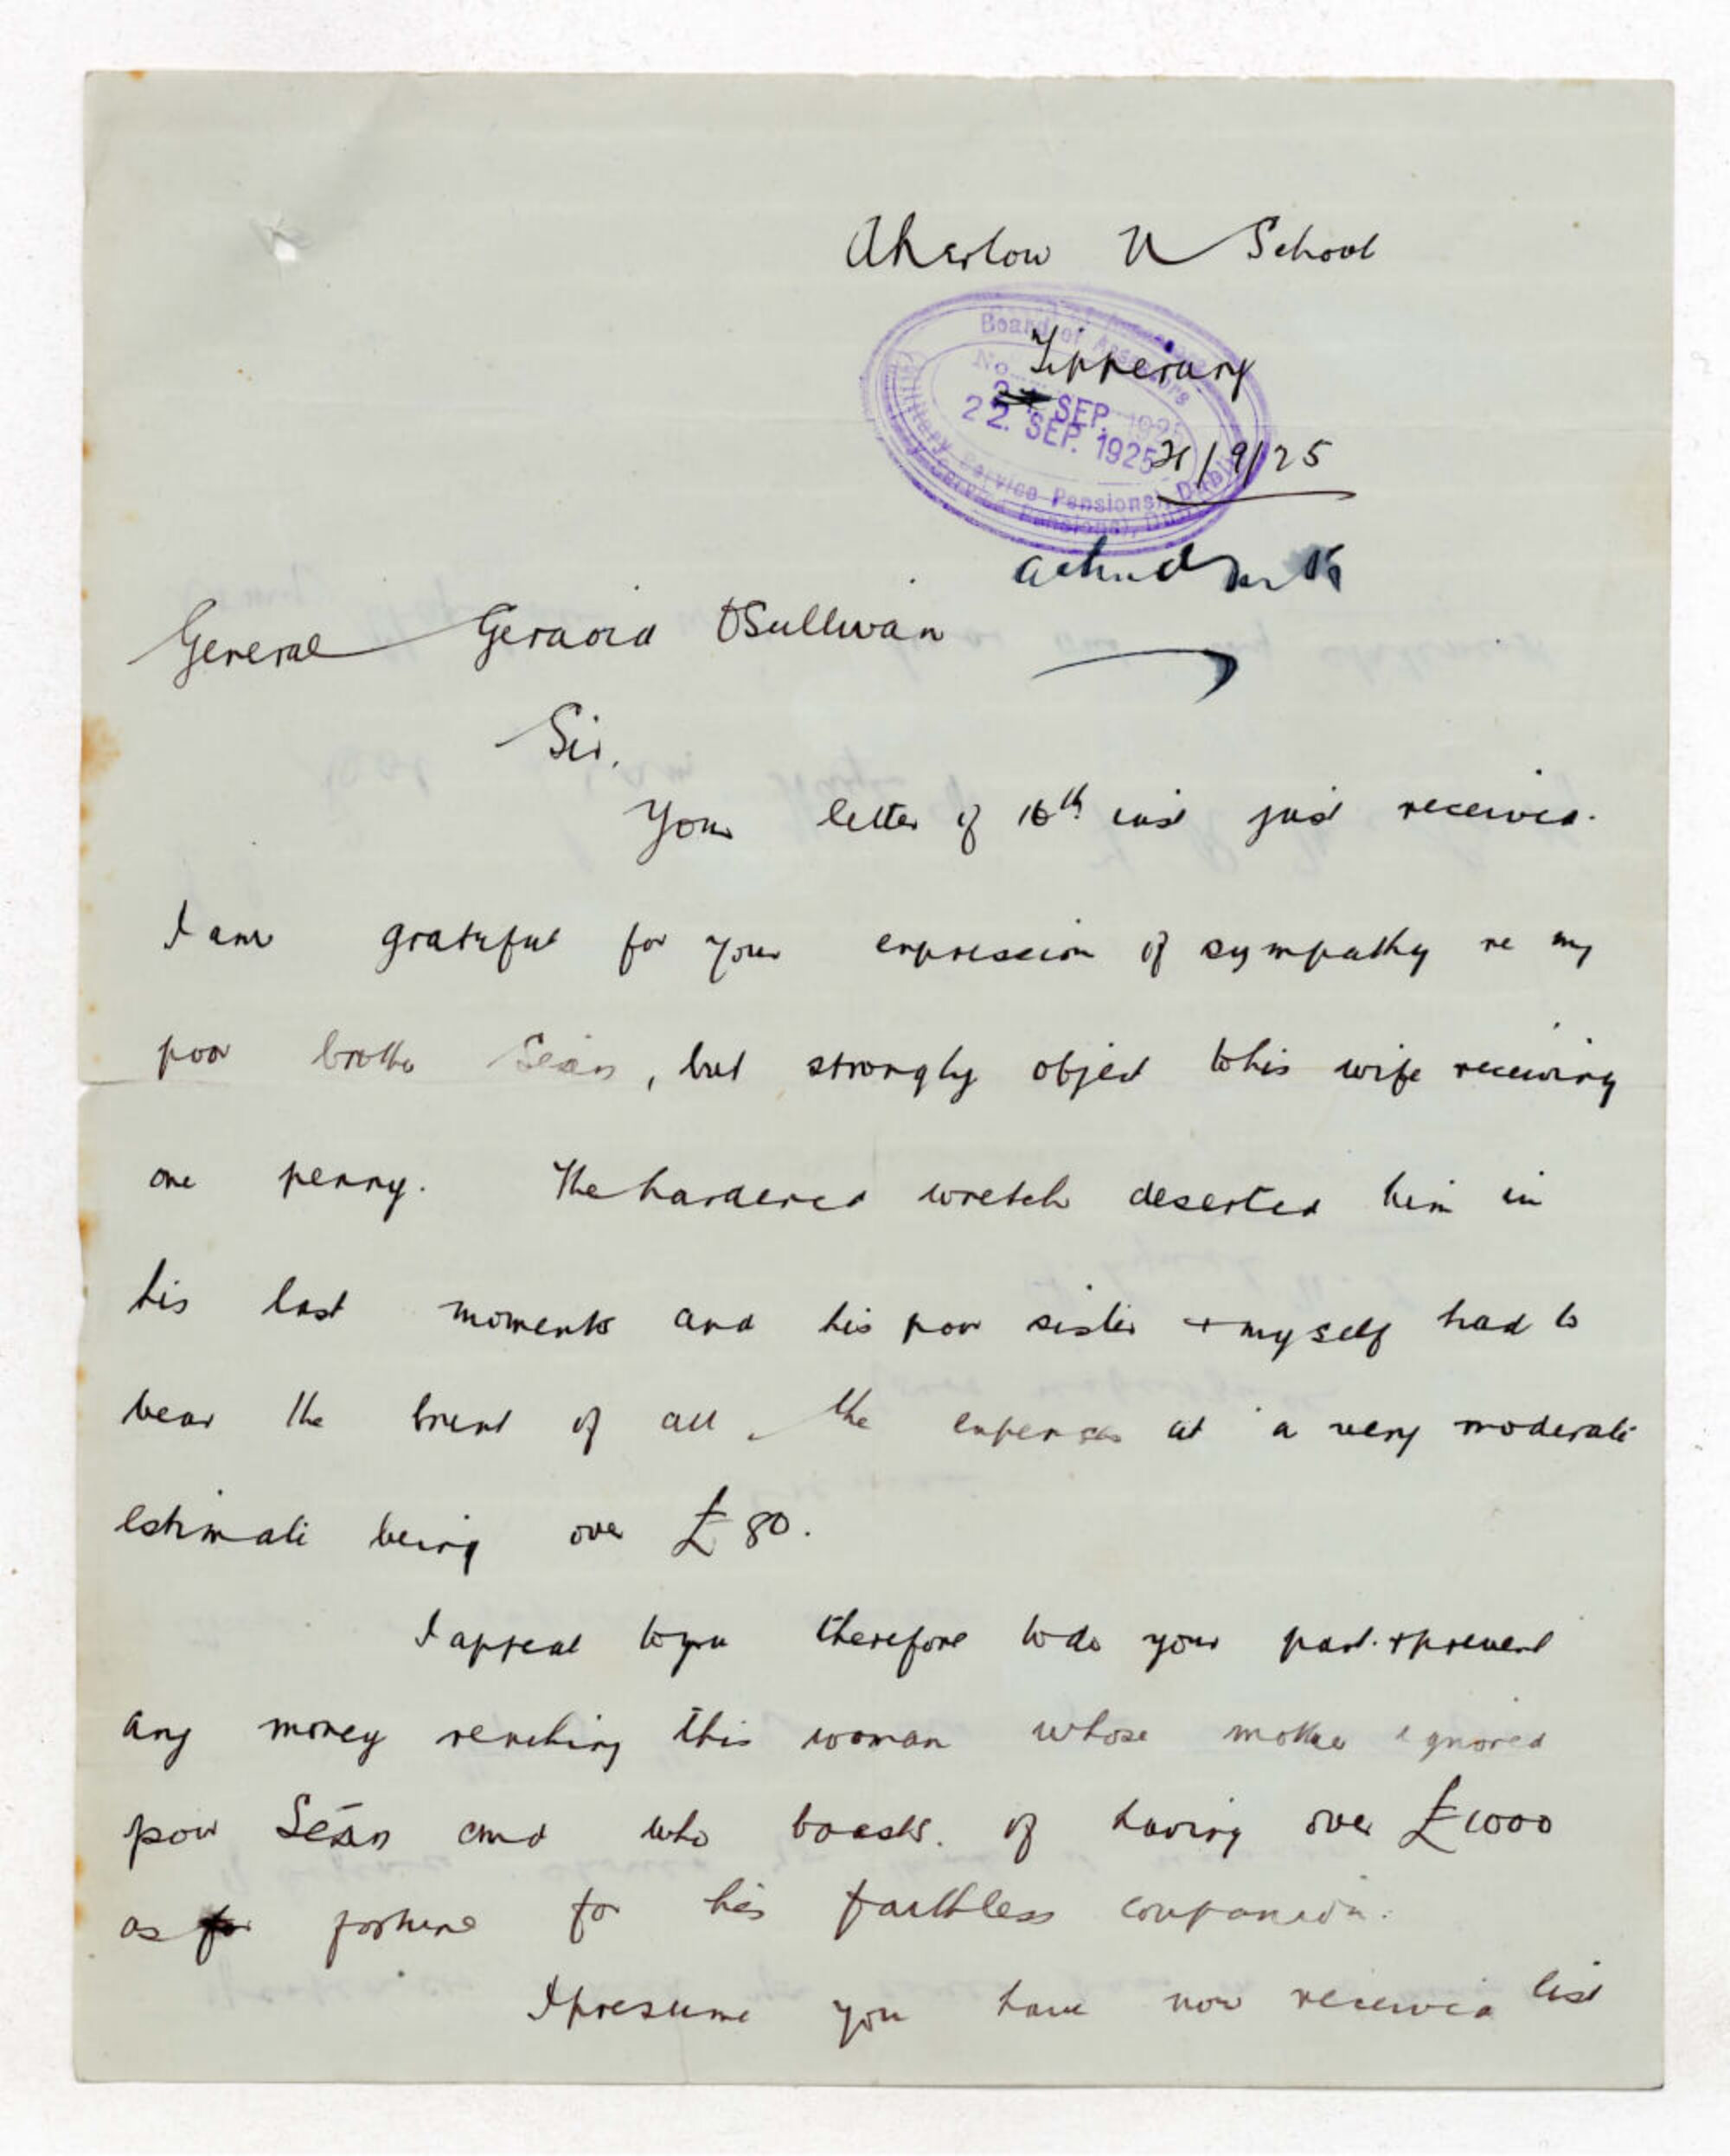 Aherlow N School
Tipperary
Board of Assessors
No.
SEP. 1925
22. SEP. 1925
Military Service Pensions, Dublin
21/9/25
General Gearoid O'Sullivan
Sir,
Your letter of 16th inst just received.
I am grateful for your expression of sympathy re my
poor brother Seán, but strongly object to his wife receiving
one penny. The hardened wretch deserted him in
his last moments and his poor sister + myself had to
bear the brunt of all the expenses at a very moderate
estimate being over £80.
I appeal to you therefore to do your part + prevent
any money reaching this woman whose mother ignored
poor Seán and who boasts of having over £1000
as fortune for his faithless companion.
I presume you have now received list